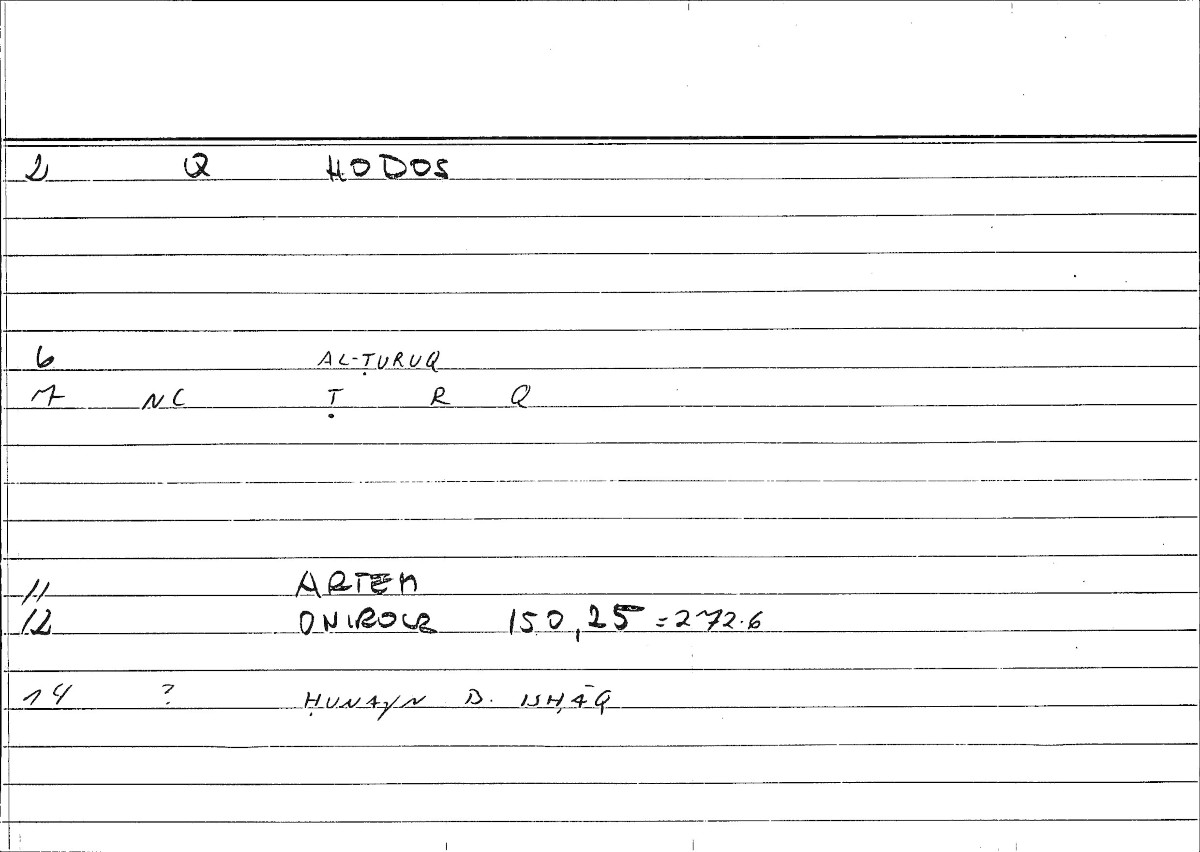 2 Q HODOS
6 AL-ṬURUQ
7 NC Ṭ R Q
11 ARTEM
12 ONIROCR 150,25 = 272.6
14 ? ḤUNAYN B. ISḤĀQ